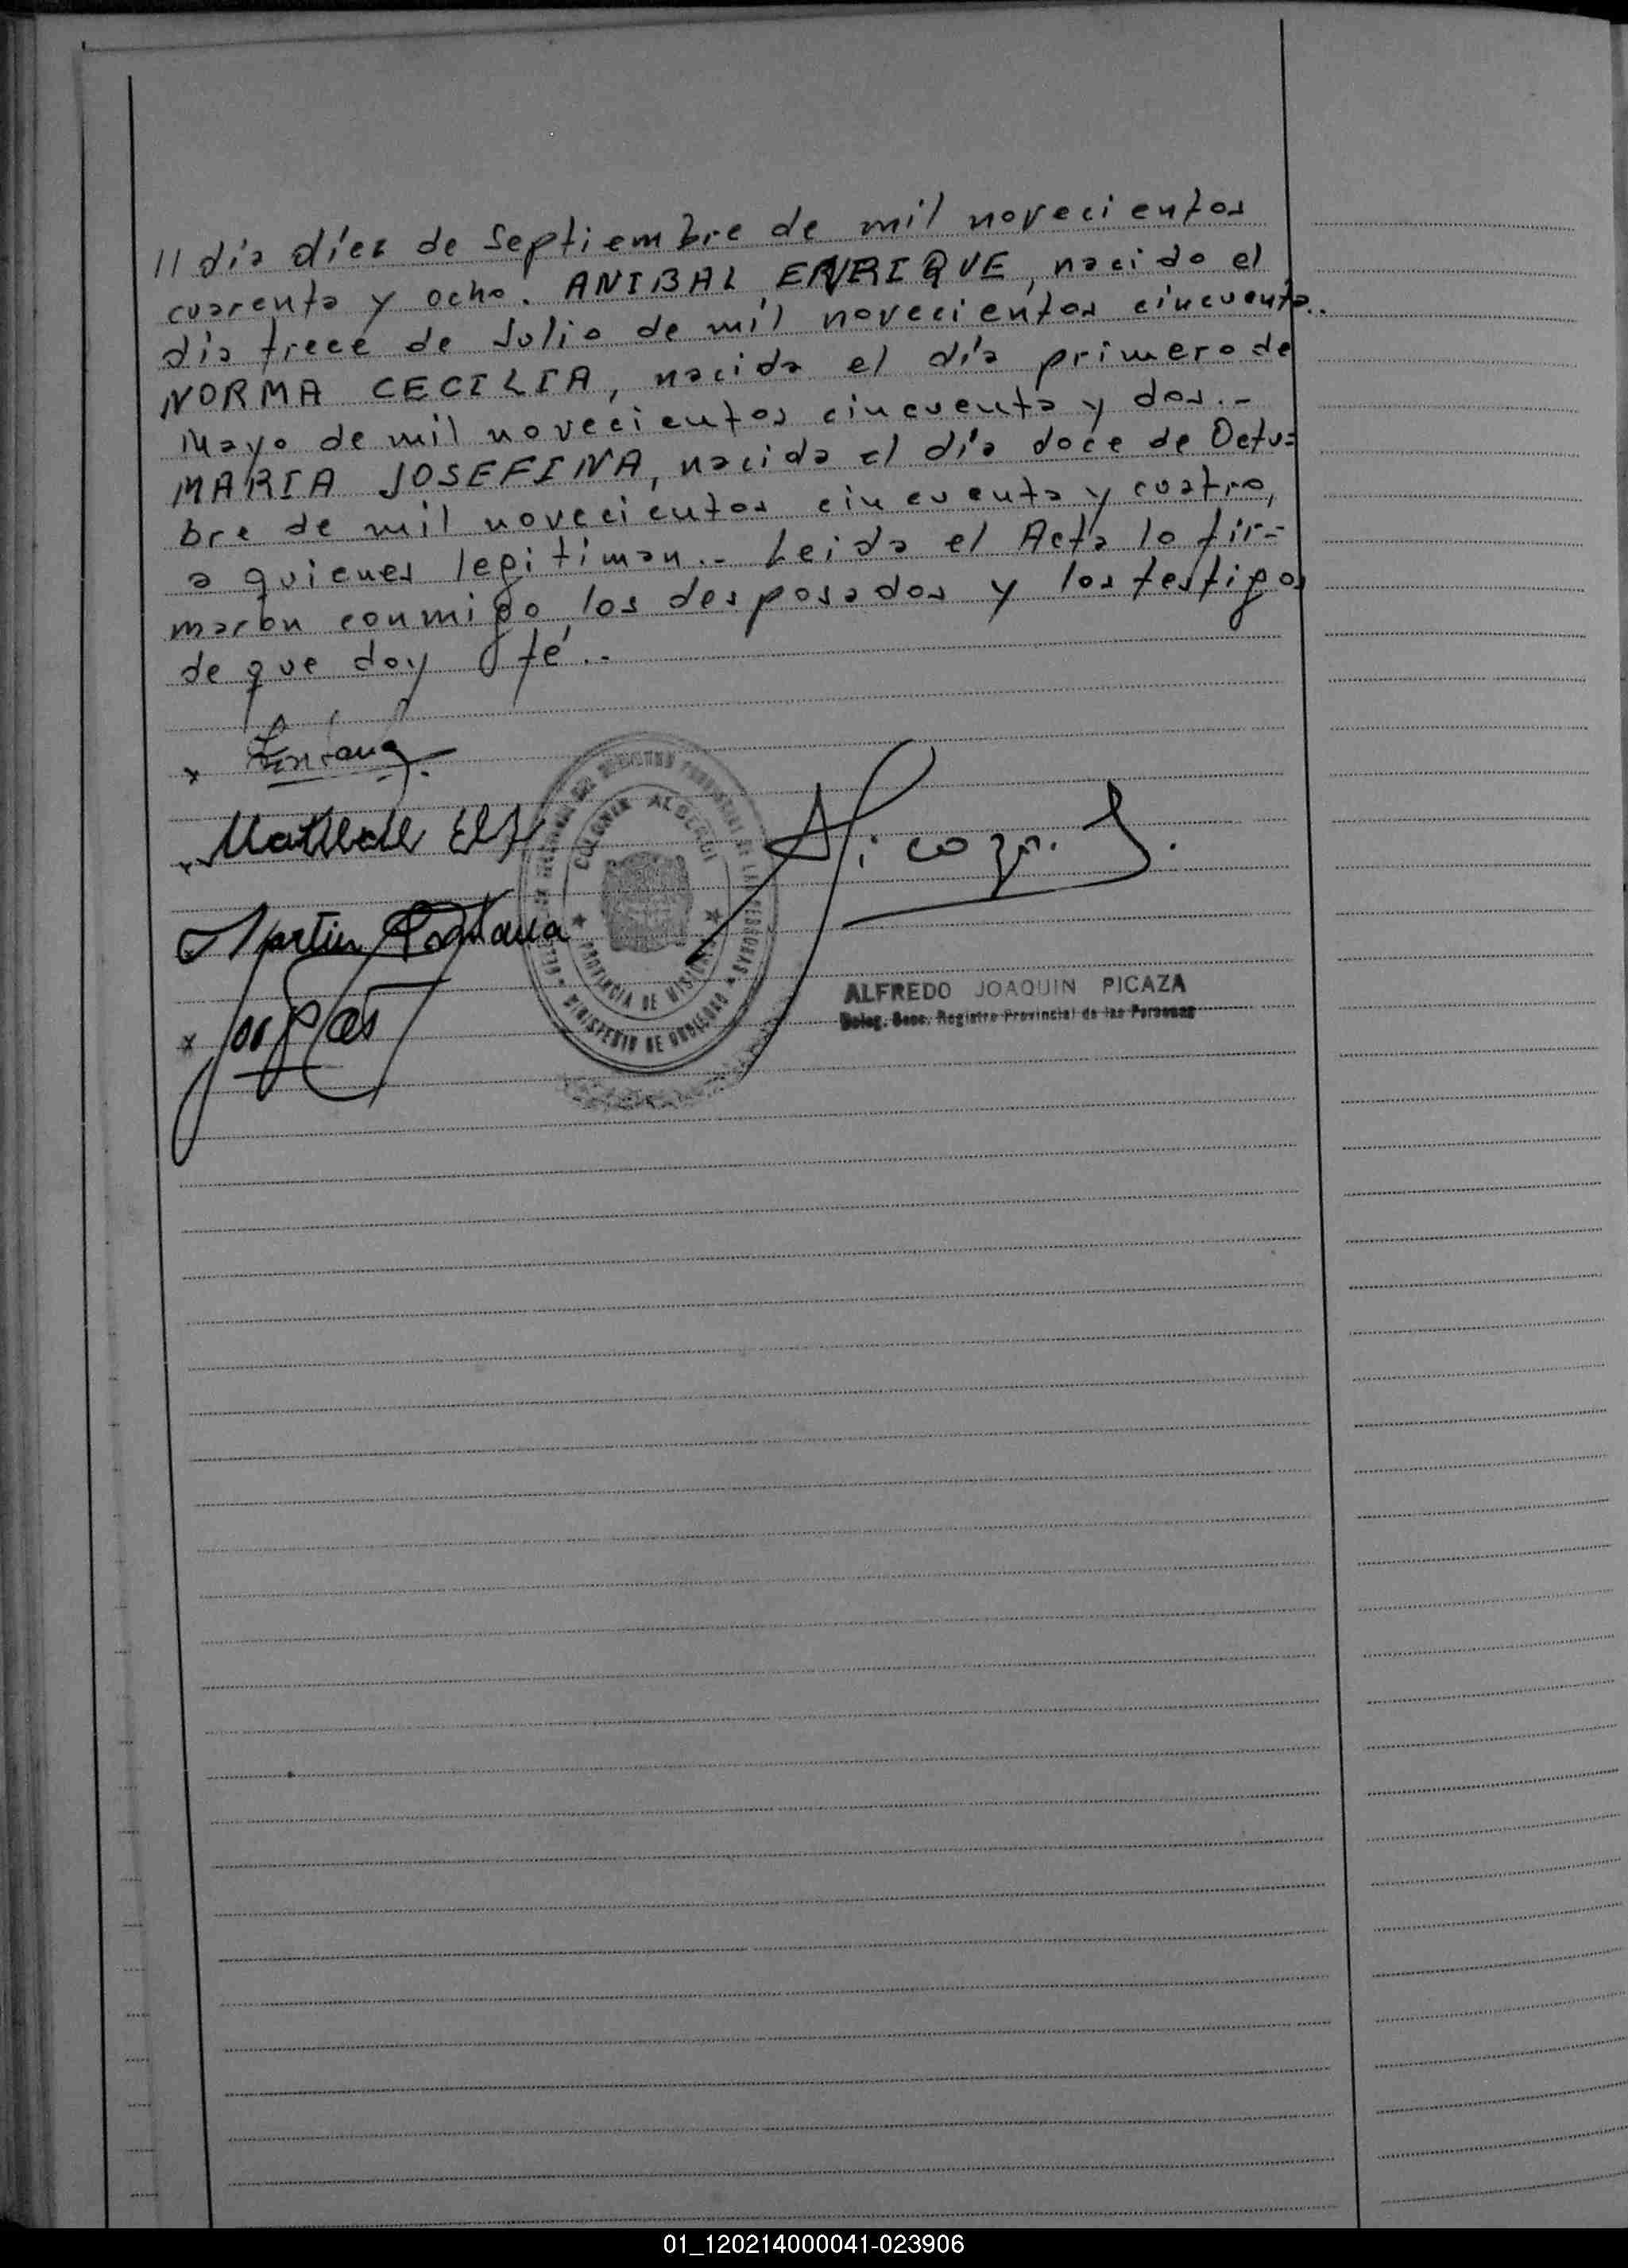 // día diez de Septiembre de mil novecientos
cuarenta y ocho. ANIBAL ENRIQUE, nacido el
día trece de Julio de mil novecientos cincuenta..
NORMA CECILIA, nacida el día primero de
Mayo de mil novecientos cincuenta y dos.-
MARIA JOSEFINA, nacida el día doce de Octu=
bre de mil novecientos cincuenta y cuatro,
a quienes legitiman.- Leida el Acta la fir-
maron conmigo los desposados y los testigos
de que doy fé..
COLONIA ALBERDI
PROVINCIA DE MISIONES
MINISTERIO DE GOBIERNO
Martin
ALFREDO JOAQUIN PICAZA
Deleg. Secc. Registro Provincial de las Personas
01_120214000041-023906